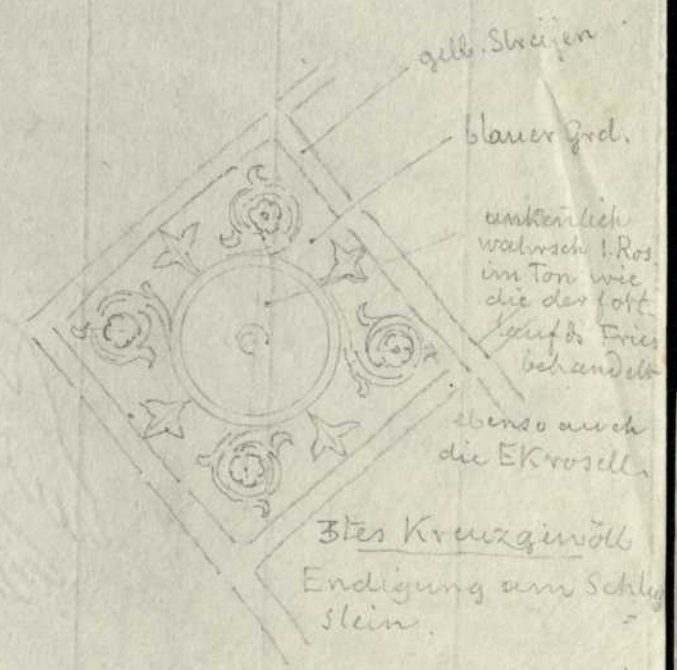 gelb. Streifen
blauer Grd.
unkentlich
wahrsch 1. Ros
im Ton wie
die der fort
laufds Fries
behandelt
ebenso auch
die EKrosell.
3tes Kreuzgewölb
Endigung am Schluß
=
stein.